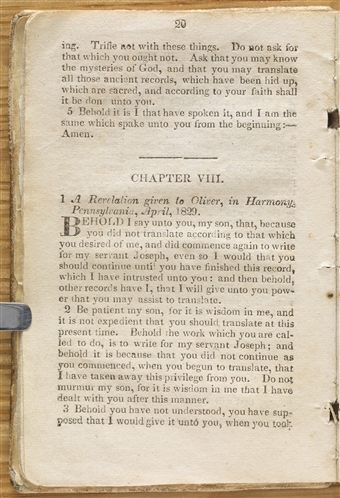 20
ing. Trifle not with these things. Do not ask for
that which you ought not. Ask that you may know
the mysteries of God, and that you may translate
all those ancient records, which have been hid up,
which are sacred, and according to your faith shall
it be don unto you.
5 Behold it is I that have spoken it, and I am the
same which spake unto you from the beginning:—
Amen.
CHAPTER VIII.
1 A Revelation given to Oliver, in Harmony,
Pennsylvania, April, 1829.
BEHOLD I say unto you, my son, that, because
you did not translate according to that which
you desired of me, and did commence again to write
for my servant Joseph, even so I would that you
should continue until you have finished this record,
which I have intrusted unto you: and then behold,
other records have I, that I will give unto you pow-
er that you may assist to translate.
2 Be patient my son, for it is wisdom in me, and
it is not expedient that you should translate at this
present time. Behold the work which you are cal-
led to do, is to write for my servant Joseph; and
behold it is because that you did not continue as
you commenced, when you begun to translate, that
I have taken away this privilege from you. Do not
murmur my son, for it is wisdom in me that I have
dealt with you after this manner.
3 Behold you have not understood, you have sup-
posed that I would give it unto you, when you took